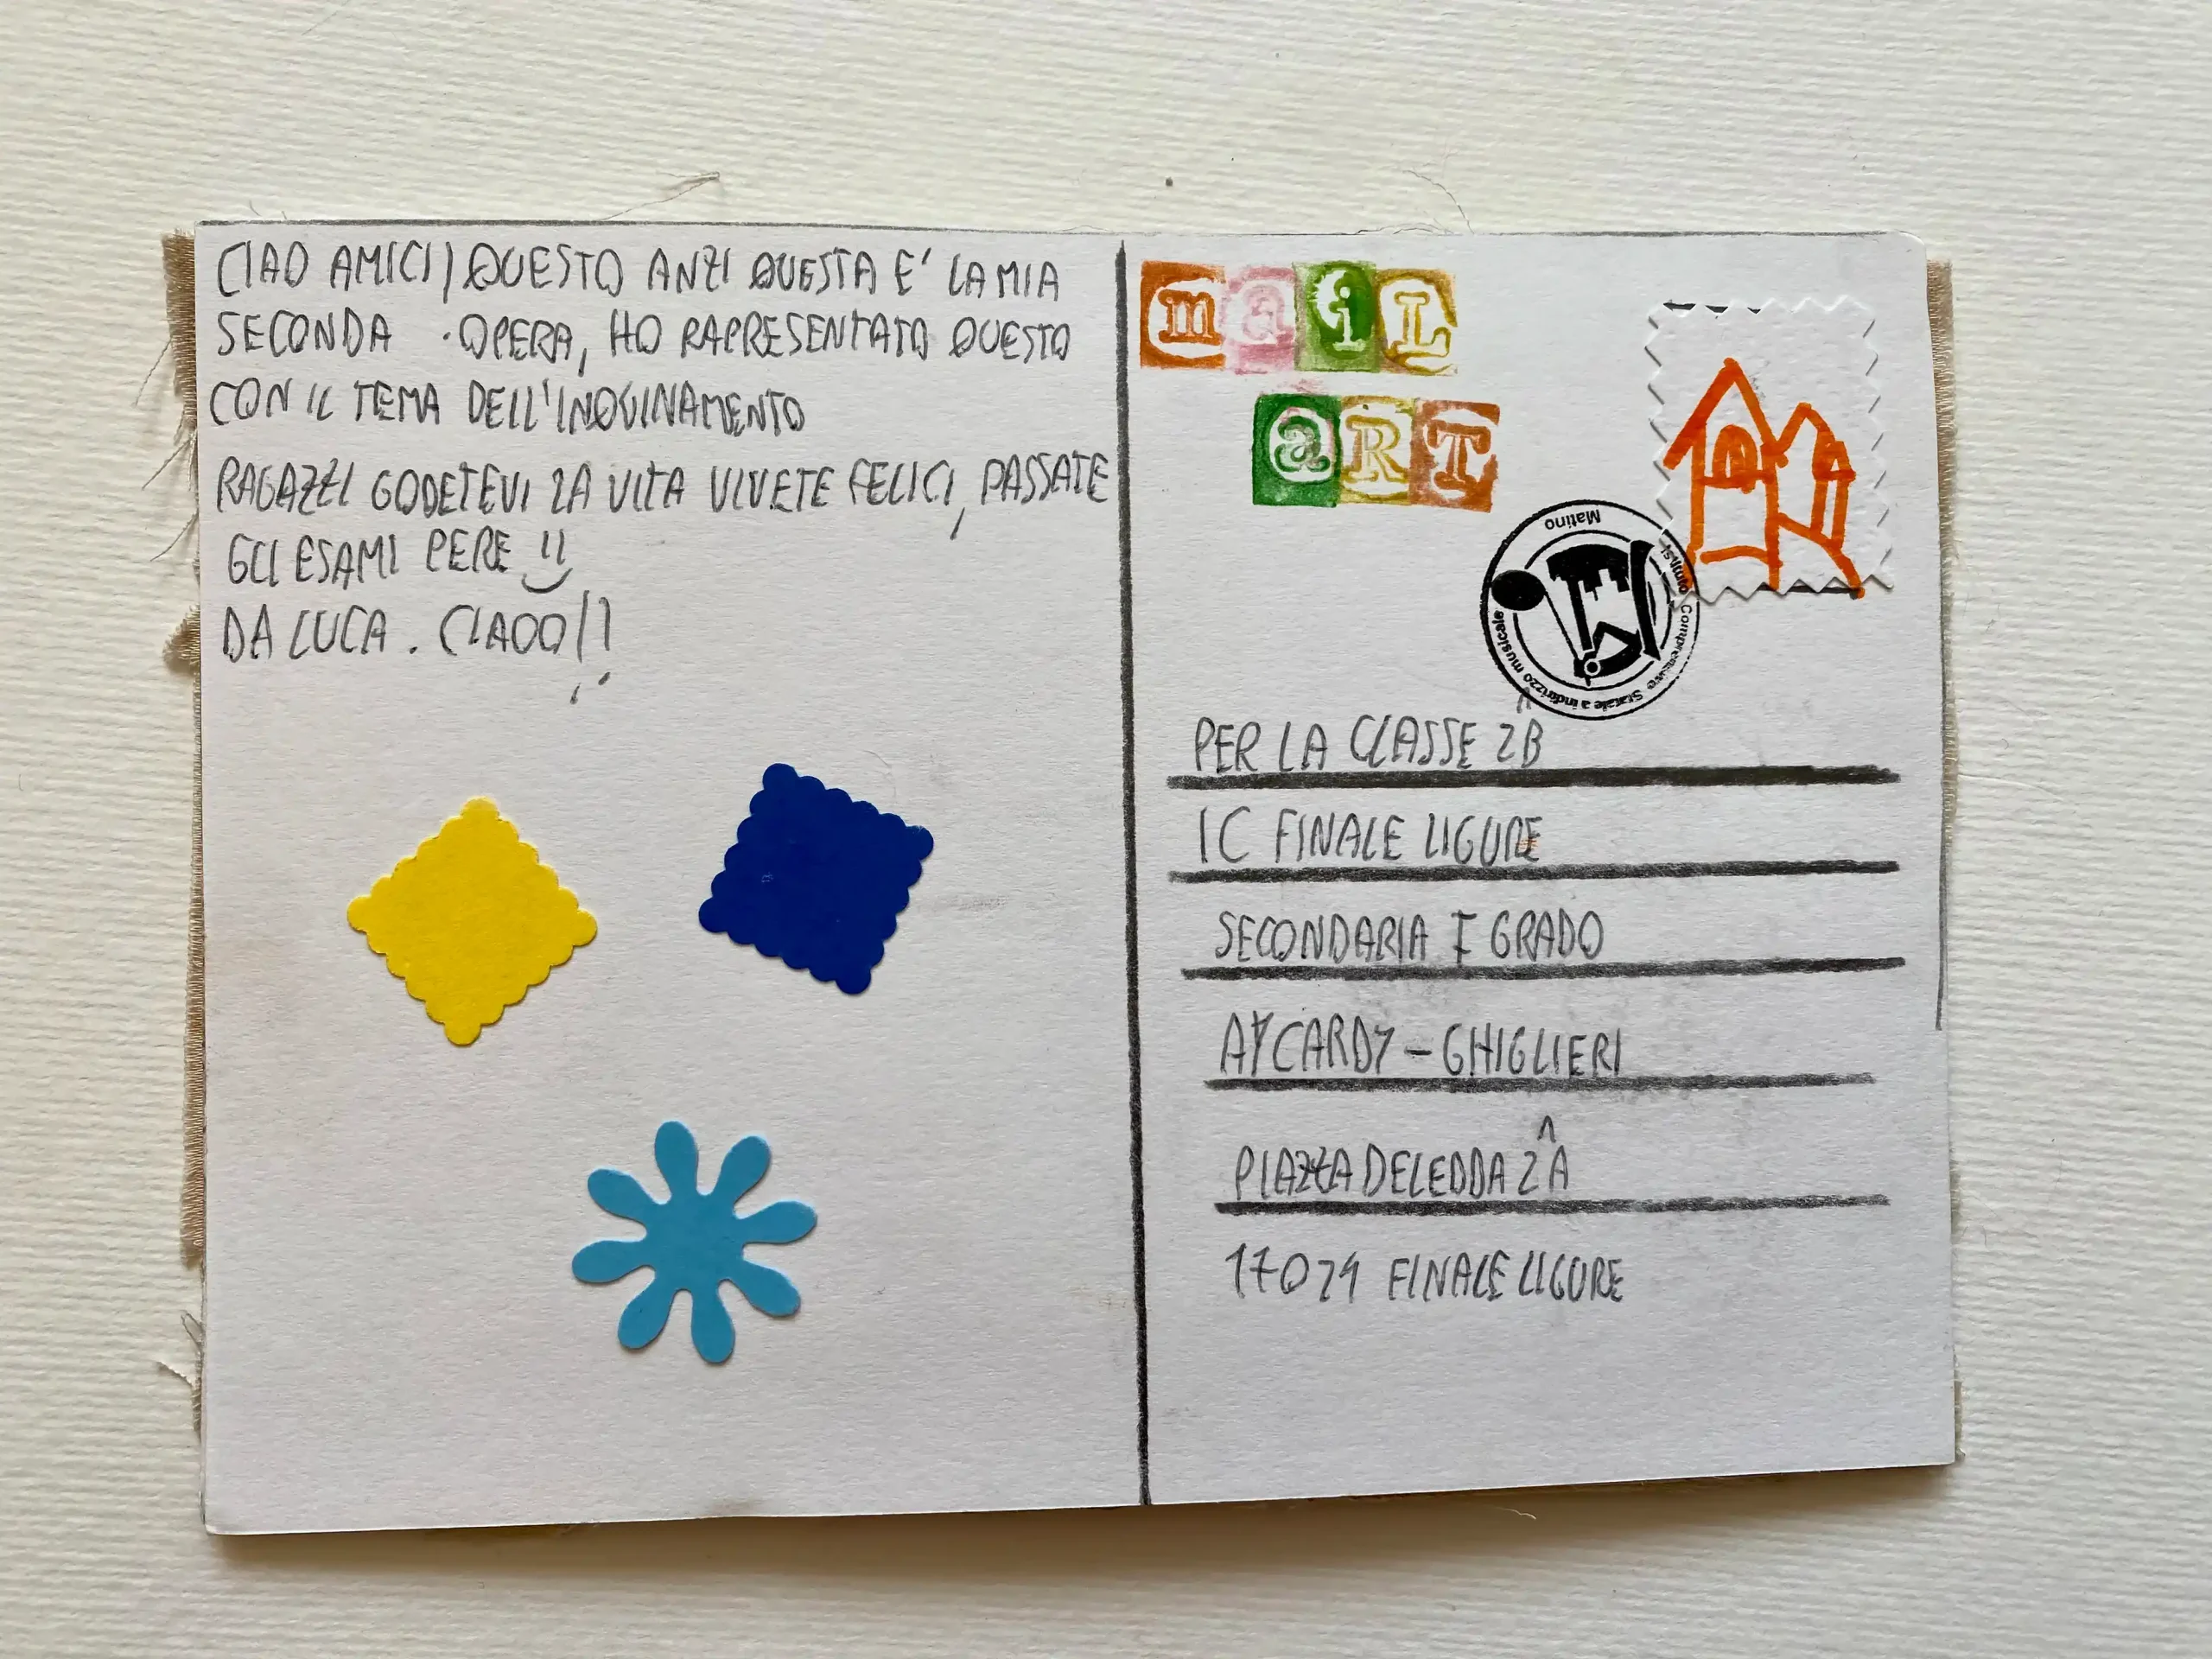 CIAO AMICI! QUESTO ANZI QUESTA E' LA MIA
SECONDA OPERA, HO RAPRESENTATO QUESTO
CON IL TEMA DELL'INQUINAMENTO
RAGAZZI GODETEVI LA VITA VIVETE FELICI, PASSATE
GLI ESAMI PERE
DA LUCA. CIAOO!!
maiL
aRT
Matino
Istituto Comprensivo Statale a indirizzo musicale
PER LA CLASSE 2^B
IC FINALE LIGURE
SECONDARIA I GRADO
AYCARDY-GHIGLIERI
PIAZZA DELEDDA 2^A
17024 FINALE LIGURE